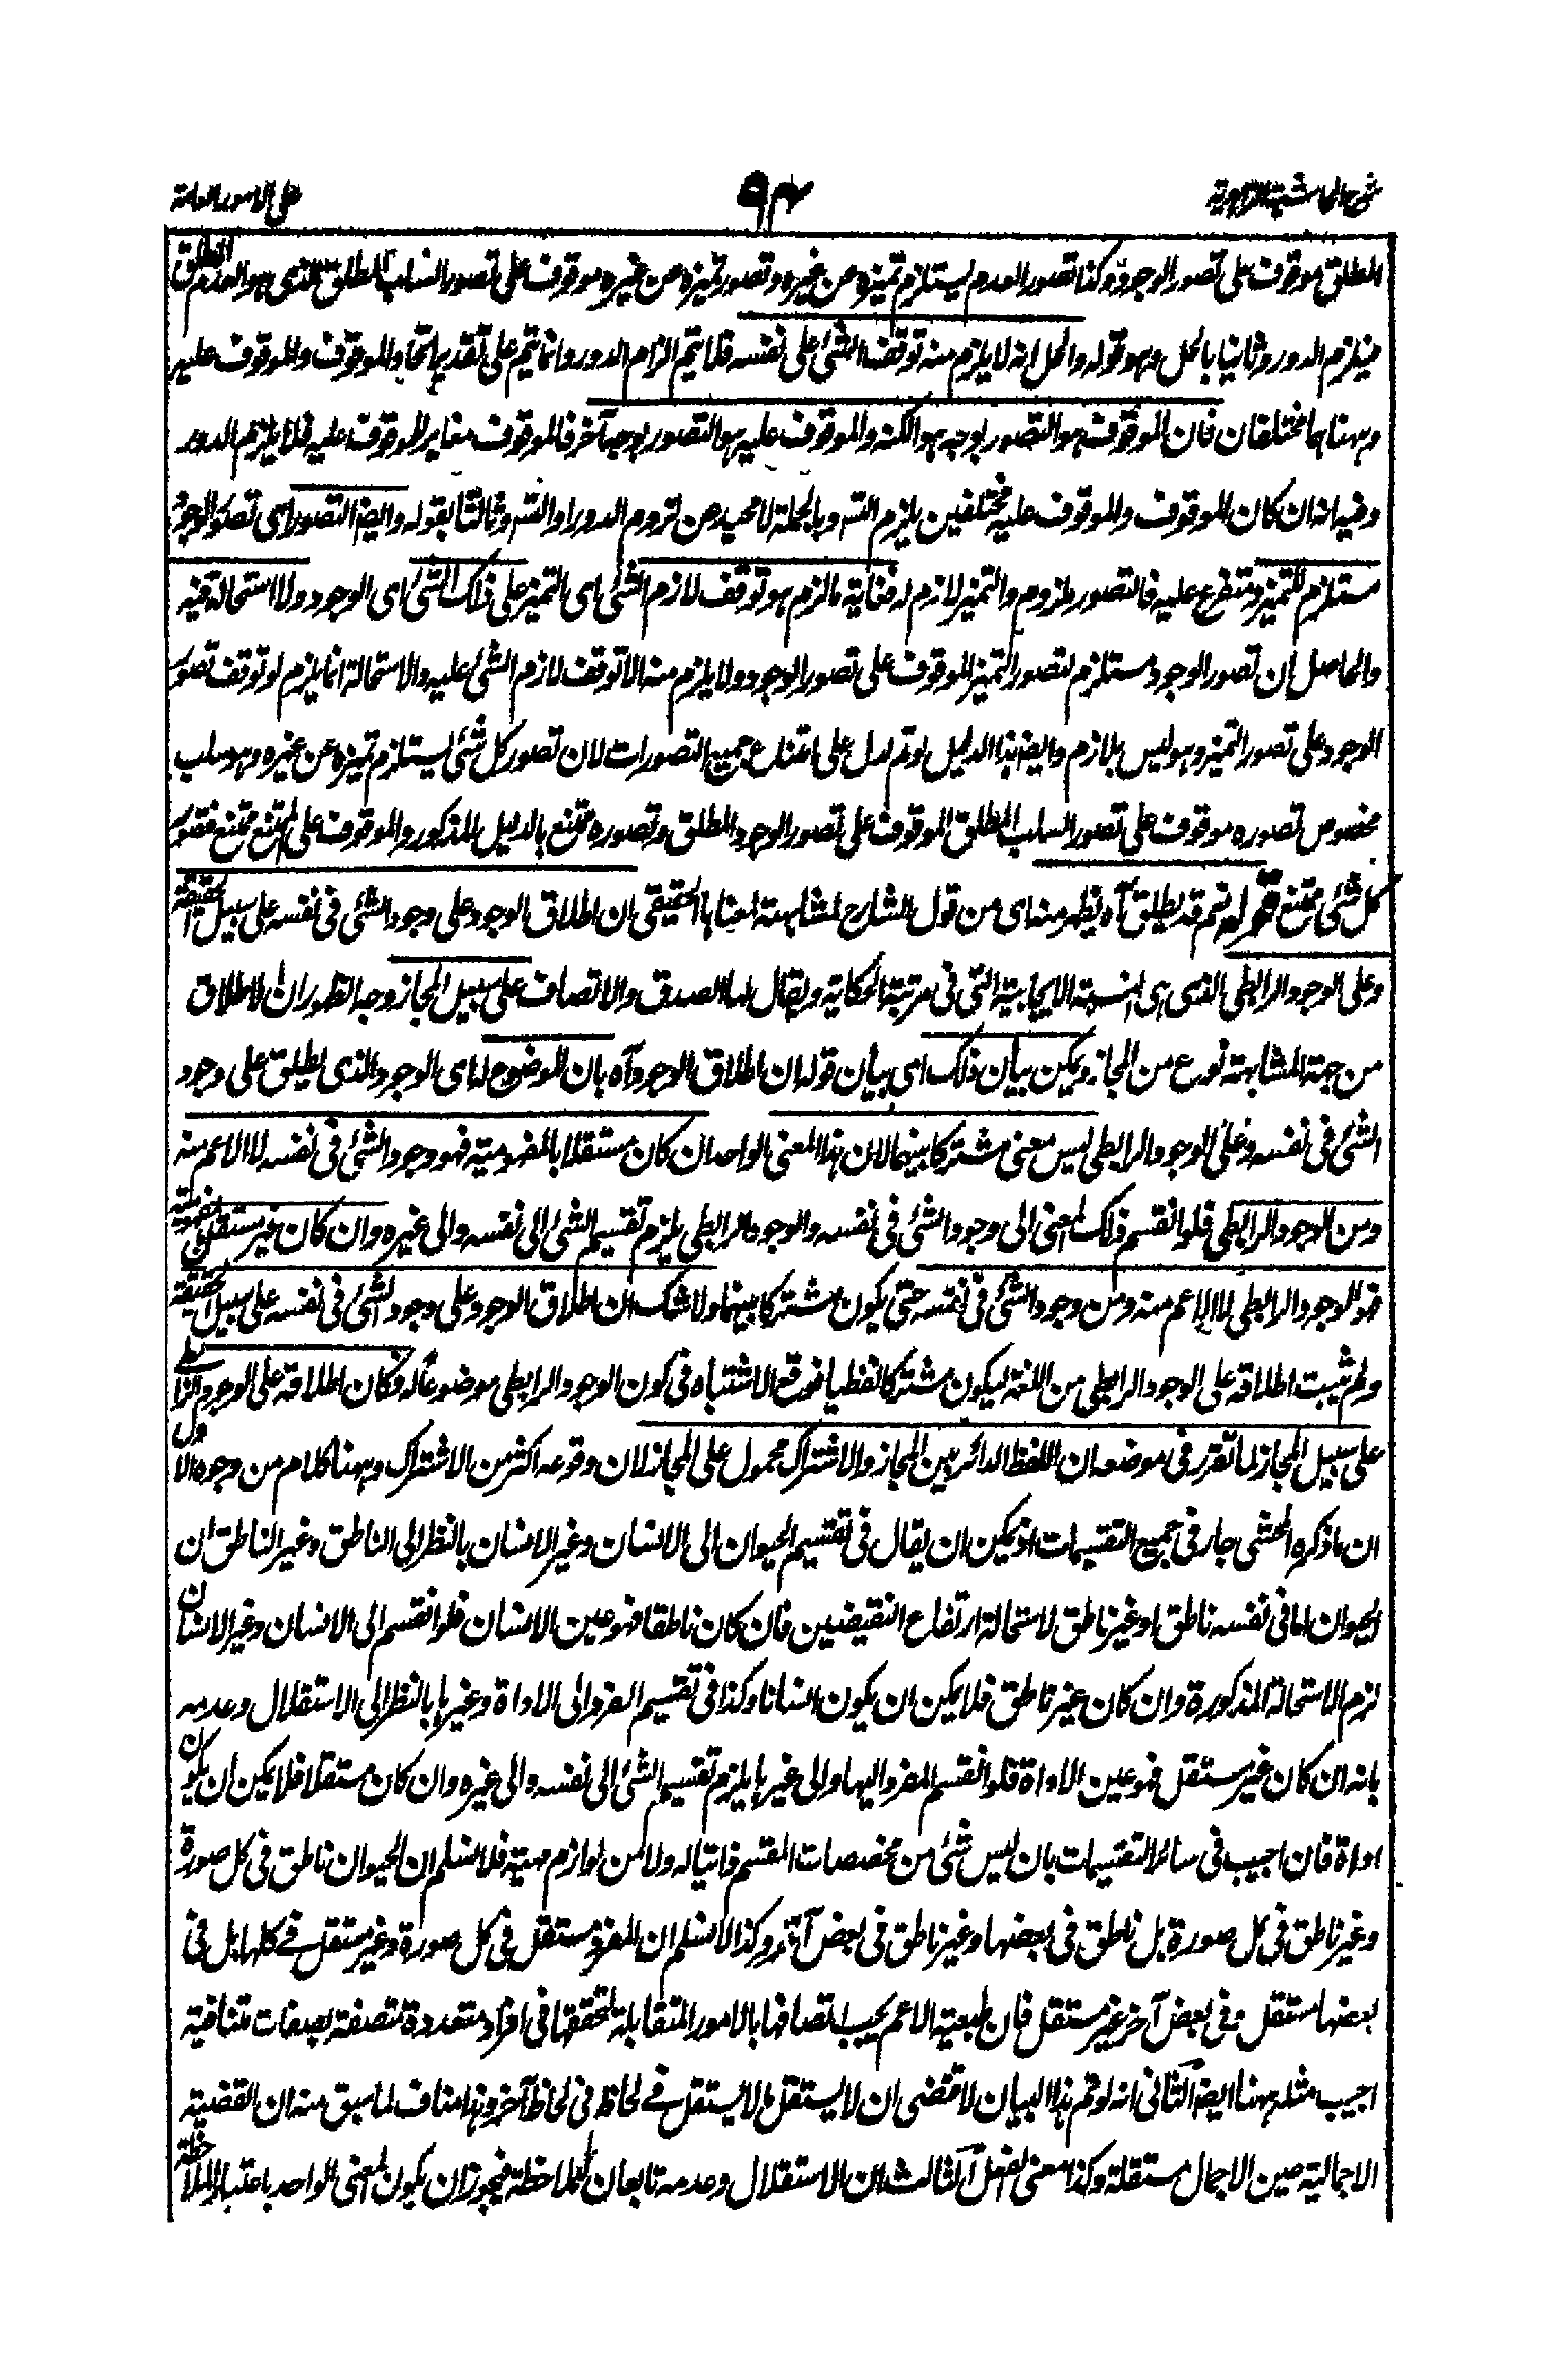 شرح الحاشية الزاهدية
٩٤
على الامور العامة
المطلق موقوف على تصور الوجود وكذا تصور العدم يستلزم تميزه عن غيره وتصور تميزه عن غيره موقوف على تصور السلب المطلق الذى هو العدم المطلق
فيلزم الدور وثانيا بالحل وهو قوله والحل انه لا يلزم منه توقف الشئ على نفسه فلا يتم الزام الدور وانما يتم على تقدير اتحاد الموقوف والموقوف عليه
وههنا هما مختلفان فان الموقوف هو التصور بوجه هو الكنه والموقوف عليه هو التصور بوجه آخر فالموقوف مغاير للموقوف عليه فلا يلزم الدور
وفيه انه ان كان الموقوف والموقوف عليه مختلفين يلزم التسـ وبالجملة لا محيد عن لزوم الدور او التسـ وثالثا بقوله وايضا التصور اى تصور الوجود
مستلزم للتميز ومتفرع عليه فالتصور ملزوم والتميز لازم له فغاية ما لزم هو توقف لازم الشئ اى التميز على ذلك الشئ اى الوجود ولا استحالة فيه
والحاصل ان تصور الوجود مستلزم لتصور التميز الموقوف على تصور الوجود ولا يلزم منه الا توقف لازم الشئ عليه والاستحالة انما يلزم لو توقف تصور
الوجود على تصور التميز وهو ليس بلازم وايضا هذا الدليل لو تم لدل على امتناع جميع التصورات لان تصور كل شئ يستلزم تميزه عن غيره وهو سلب
مخصوص تصوره موقوف على تصور السلب المطلق الموقوف على تصور الوجود المطلق وتصوره ممتنع بالدليل المذكور والموقوف على الممتنع ممتنع فتصور
كل شئ ممتنع قوله نعم قد يطلق آه يظهر منه اى من قول الشارح لمشابهته لمعناها الحقيقى ان اطلاق الوجود على وجود الشئ فى نفسه على سبيل الحقيقة
وعلى الوجود الرابطى الذى هى النسبة الايجابية التى فى مرتبة الحكاية ويقال لها الصدق والاتصاف على سبيل المجاز وجه الظهور ان الاطلاق
من جهة المشابهة نوع من المجاز ويمكن بيان ذلك اى بيان قوله ان اطلاق الوجود آه بان الموضوع له اى الوجود الذى يطلق على وجود
الشئ فى نفسه وعلى الوجود الرابطى ليس معنى مشتركا بينهما لان هذا المعنى الواحد ان كان مستقلا بالمفهومية فهو وجود الشئ فى نفسه لا الاعم منه
ومن الوجود الرابطى فلو انقسم ذلك المعنى الى وجود الشئ فى نفسه والوجود الرابطى يلزم تقسيم الشئ الى نفسه والى غيره وان كان غير مستقل بالمفهومية
فهو الوجود الرابطى لا الاعم منه ومن وجود الشئ فى نفسه حتى يكون مشتركا بينهما ولا شك ان اطلاق الوجود على وجود الشئ فى نفسه على سبيل الحقيقة
ولم يثبت اطلاقه على الوجود الرابطى من اللغة ليكون مشتركا لفظيا فوقع الاشتباه فى كون الوجود الرابطى موضوعا له فكان اطلاقه على الوجود الرابطى
على سبيل المجاز لما تقرر فى موضعه ان اللفظ الدائر بين المجاز والاشتراك محمول على المجاز لان وقوعه اكثر من الاشتراك وههنا كلام من وجوه الاول
ان ما ذكره المحشى جار فى جميع التقسيمات اذ يمكن ان يقال فى تقسيم الحيوان الى الانسان وغير الانسان بالنظر الى الناطق وغير الناطق ان
الحيوان اما فى نفسه ناطق او غير ناطق لاستحالة ارتفاع النقيضين فان كان ناطقا فهو عين الانسان فلو انقسم الى الانسان وغير الانسان
لزم الاستحالة المذكورة وان كان غير ناطق فلا يمكن ان يكون انسانا وكذا فى تقسيم المفرد الى الاداة وغيرها بالنظر الى الاستقلال وعدمه
بانه ان كان غير مستقل فهو عين الاداة فلو انقسم المفرد اليها والى غيرها يلزم تقسيم الشئ الى نفسه والى غيره وان كان مستقلا فلا يمكن ان يكون
اداة فان اجيب فى سائر التقسيمات بان ليس شئ من مخصصات المقسم ذاتيا له ولا من لوازم مهية فلا نسلم ان الحيوان ناطق فى كل صورة
وغير ناطق فى كل صورة بل ناطق فى بعضها وغير ناطق فى بعض آخر وكذا لا نسلم ان المفرد مستقل فى كل صورة وغير مستقل فى كلها بل فى
بعضها مستقل وفى بعض آخر غير مستقل فان طبيعة الاعم يجب اتصافها بالامور المتقابلة لتحققها فى افراد متعددة متصفة بصفات متنافية
اجيب مثله ههنا ايضا الثانى انه لو تم هذا البيان لاقتضى ان لا يستقل ما لا يستقل فى لحاظ فى لحاظ آخر وهذا مناف لما سبق منه ان القضية
الاجمالية حين الاجمال مستقلة وكذا معنى الفعل الثالث ان الاستقلال وعدمه تابعان للملاحظة فيجوز ان يكون المعنى الواحد باعتبار الملاحظة